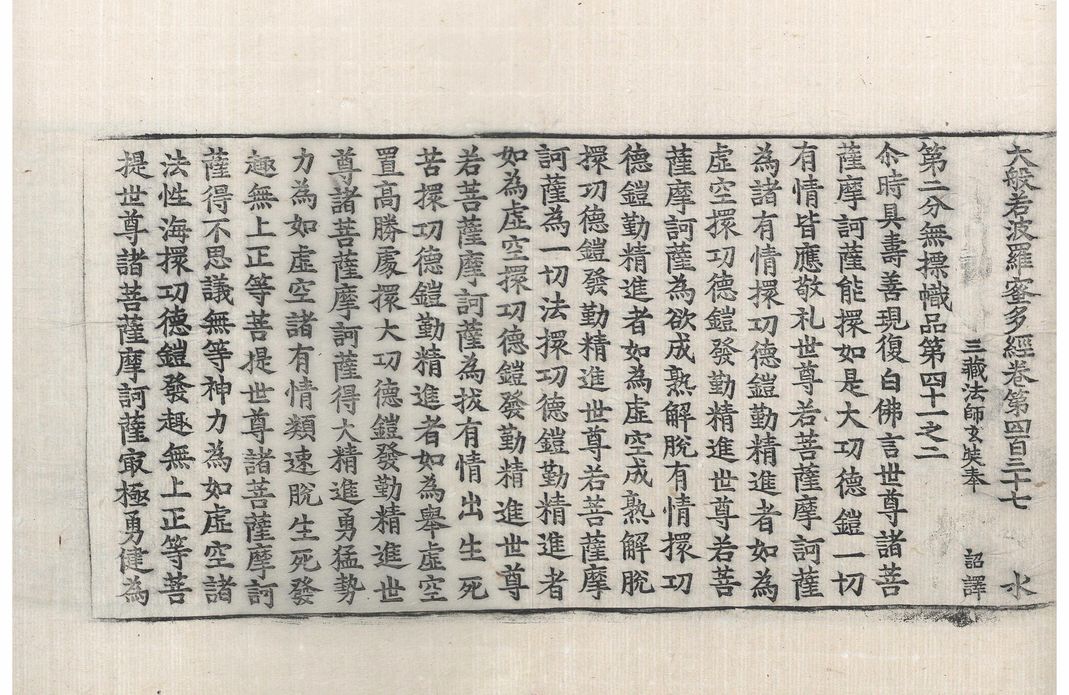 大般若波羅蜜多經卷第四百三十七　水
三藏法師玄奘奉　詔譯
第二分無摽幟品第四十一之二
尒時具壽善現復白佛言世尊諸菩
薩摩訶薩能擐如是大功德鎧一切
有情皆應敬礼世尊若菩薩摩訶薩
為諸有情擐功德鎧勤精進者如為
虛空擐功德鎧發勤精進世尊若菩
薩摩訶薩為欲成熟解脫有情擐功
德鎧勤精進者如為虛空成熟解脫
擐功德鎧發勤精進世尊若菩薩摩
訶薩為一切法擐功德鎧勤精進者
如為虛空擐功德鎧發勤精進世尊
若菩薩摩訶薩為拔有情出生死
苦擐功德鎧勤精進者如為舉虛空
置高勝處擐大功德鎧發勤精進世
尊諸菩薩摩訶薩得大精進勇猛勢
力為如虛空諸有情類速脫生死發
趣無上正等菩提世尊諸菩薩摩訶
薩得不思議無等神力為如虛空諸
法性海擐功德鎧發趣無上正等菩
提世尊諸菩薩摩訶薩㝡極勇健為